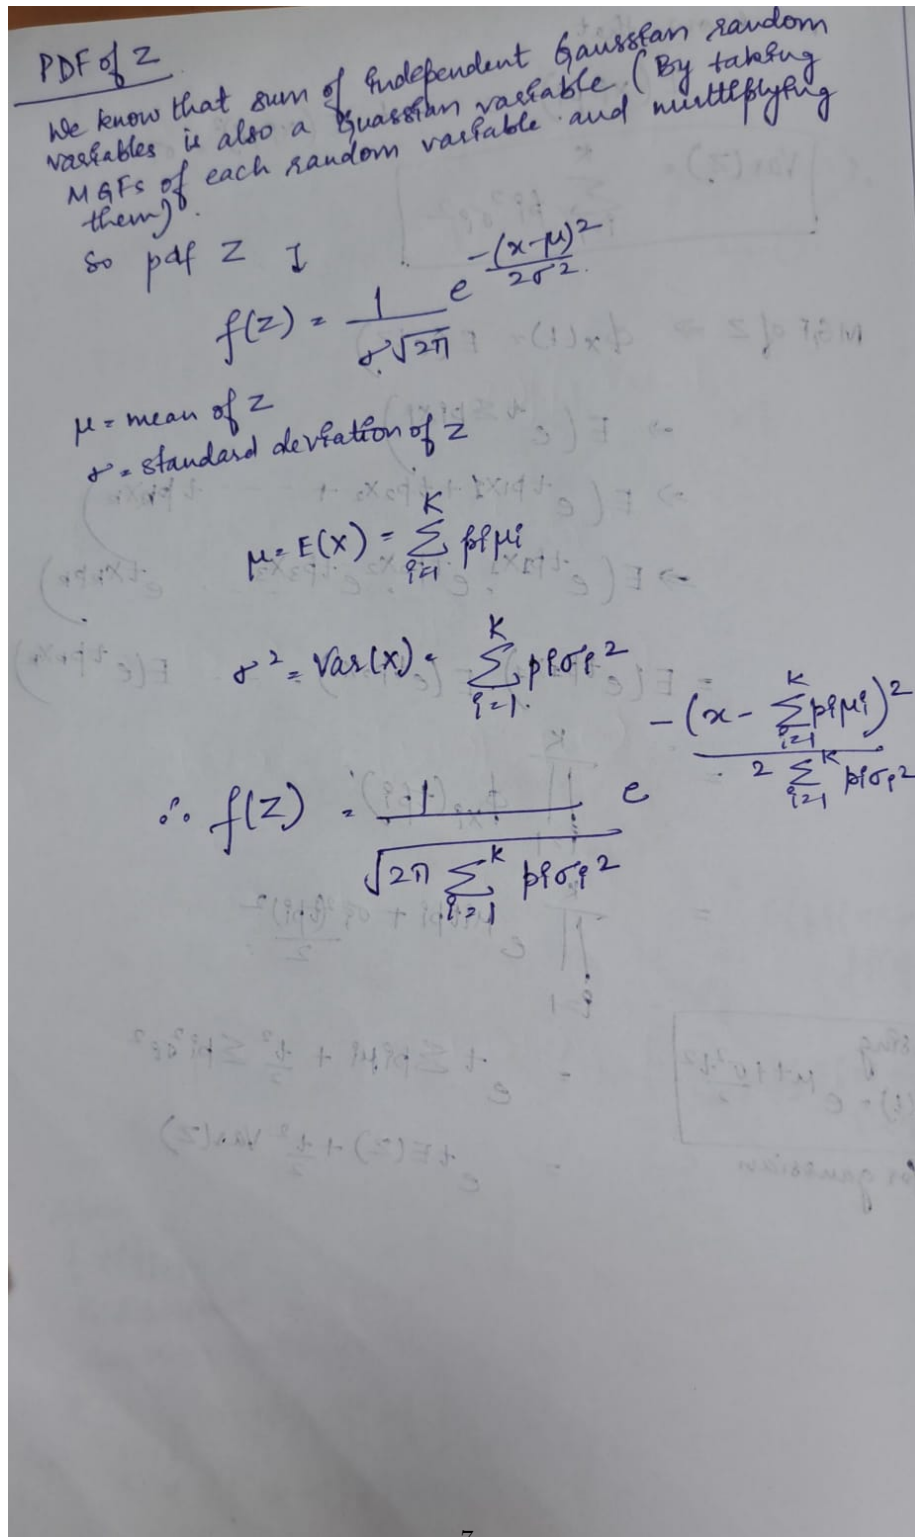 PDF of Z
We know that sum of independent Gaussian random
variables is also a Guassian variable (By taking
MGFs of each random variable and multiplying
them).
So pdf Z I
f(Z) = 1/(σ√2π) e^(-(x-μ)²/2σ²)
μ = mean of Z
σ = standard deviation of Z
μ = E(X) = Σ_{i=1}^{K} piμi
σ² = Var(X) = Σ_{i=1}^{K} piσi²
∴ f(Z) = 1/√(2π Σ_{i=1}^{K} piσi²) e^(-(x - Σ_{i=1}^{K} piμi)²/(2 Σ_{i=1}^{K} piσi²))
7